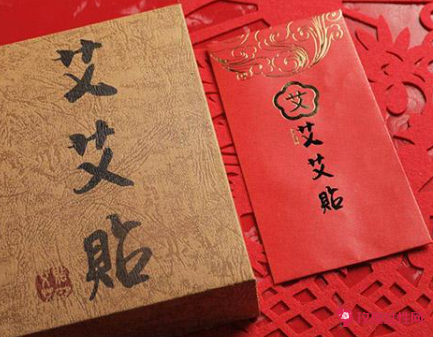 艾艾貼
艾
艾艾貼